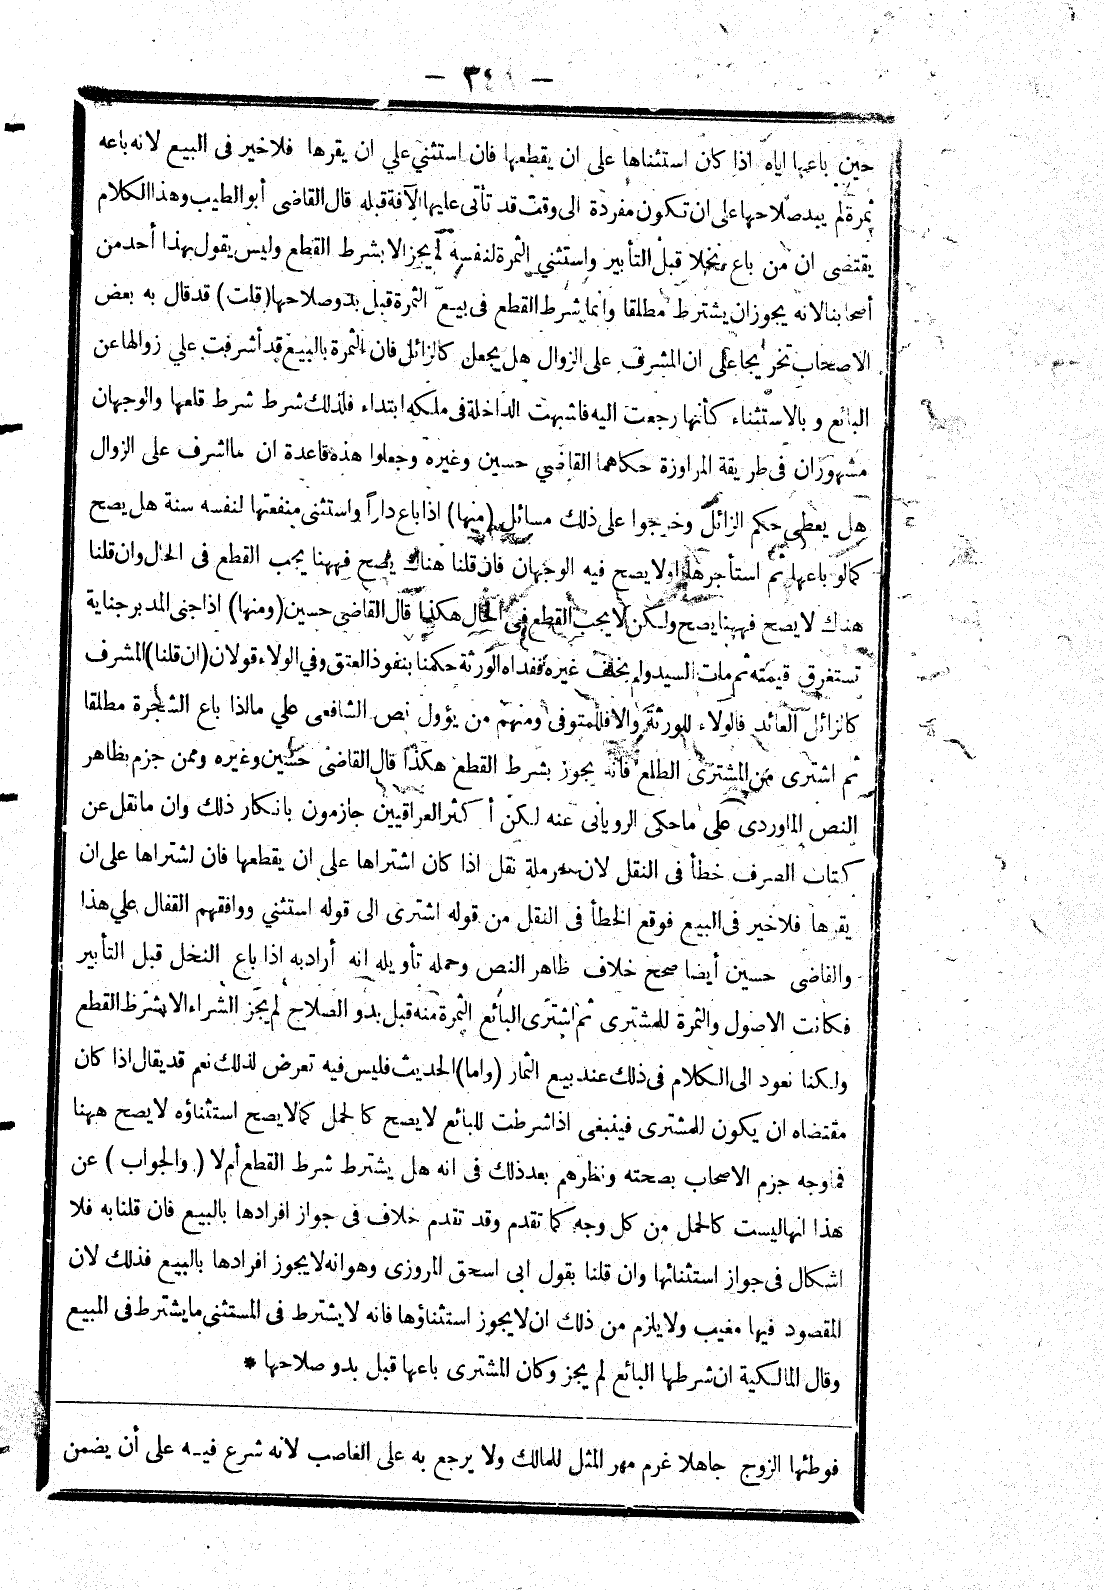 حين باعها اياه اذا كان استثناها على ان يقطعها فان استثني علي ان يقرها فلاخير فى البيع لانه باعه
ثمرة لم يبد صلاحها على ان تكون مفردة الى وقت قد تأتى عليها الآفة قبله قال القاضى أبو الطيب وهذا الكلام
يقتضى ان من باع نخلا قبل التأبير واستثني الثمرة لنفسه لم يجز الا بشرط القطع وليس يقول بهذا أحد من
أصحابنا لانه يجوز ان يشترط مطلقا وانما يشرط القطع فى بيع الثمرة قبل بدو صلاحها (قلت) قد قال به بعض
الاصحاب تخريجا على ان المشرف على الزوال هل يجعل كالزائل فان الثمرة بالبيع قد أشرفت علي زوالها عن
البائع وبالاستثناء كأنها رجعت اليه فاشبهت الداخلة فى ملكه ابتداء فلذلك شرط شرط قلعها والوجهان
مشهوران فى طريقة المراوزة حكاهما القاضي حسين وغيره وجعلوا هذه قاعدة ان ما اشرف على الزوال
هل يعطي حكم الزائل وخرجوا على ذلك مسائل (منها) اذا باع داراً واستثنى منفعتها لنفسه سنة هل يصح
كما لو باعها ثم استأجرها اولا يصح فيه الوجهان فان قلنا هناك يصح فههنا يجب القطع فى الحال وان قلنا
هناك لا يصح فههنا يصح ولكن لا يجب القطع فى الحال هكذا قال القاضى حسين (ومنها) اذا جنى المدبر جناية
تستغرق قيمته ثم مات السيد ولم يخلف غيره ففداه الورثة حكمنا بنفوذ العتق وفي الولاء قولان (ان قلنا) المشرف
كالزائل العائد فالولاء للورثة والا فللمتوفى ومنهم من يؤول نص الشافعى علي ما اذا باع الشجرة مطلقا
ثم اشترى من المشترى الطلع فانه يجوز بشرط القطع هكذا قال القاضى حسين وغيره وممن جزم بظاهر
النص الماوردى على ما حكى الرويانى عنه لكن أكثر العراقيين جازمون بانكار ذلك وان ما نقل عن
كتاب الصرف خطأ فى النقل لان حرملة نقل اذا كان اشتراها على ان يقطعها فان اشتراها على ان
يقرها فلا خير فى البيع فوقع الخطأ فى النقل من قوله اشترى الى قوله استثني ووافقهم القفال علي هذا
والقاضى حسين أيضا صحح خلاف ظاهر النص وحمله تأويله انه أراد به اذا باع النخل قبل التأبير
فكانت الاصول والثمرة للمشترى ثم اشترى البائع الثمرة منه قبل بدو الصلاح لم يجز الشراء الا بشرط القطع
ولكنا نعود الى الكلام فى ذلك عند بيع الثمار (واما) الحديث فليس فيه تعرض لذلك نعم قد يقال اذا كان
مقتضاه ان يكون للمشترى فينبغى اذا شرطت للبائع لا يصح كالحمل كما لا يصح استثناؤه لا يصح ههنا
فما وجه جزم الاصحاب بصحته ونظرهم بعد ذلك فى انه هل يشترط شرط القطع أم لا (والجواب) عن
هذا انها ليست كالحمل من كل وجه كما تقدم وقد تقدم خلاف فى جواز افرادها بالبيع فان قلنا به فلا
اشكال فى جواز استثنائها وان قلنا بقول ابى اسحق المروزى وهو انه لا يجوز افرادها بالبيع فذلك لان
المقصود فيها مغيب ولا يلزم من ذلك ان لا يجوز استثناؤها فانه لا يشترط فى المستثنى ما يشترط فى المبيع
وقال المالكية ان شرطها البائع لم يجز وكان المشترى باعها قبل بدو صلاحها *
فوطئها الزوج جاهلا غرم مهر المثل للمالك ولا يرجع به على الغاصب لانه شرع فيه على أن يضمن